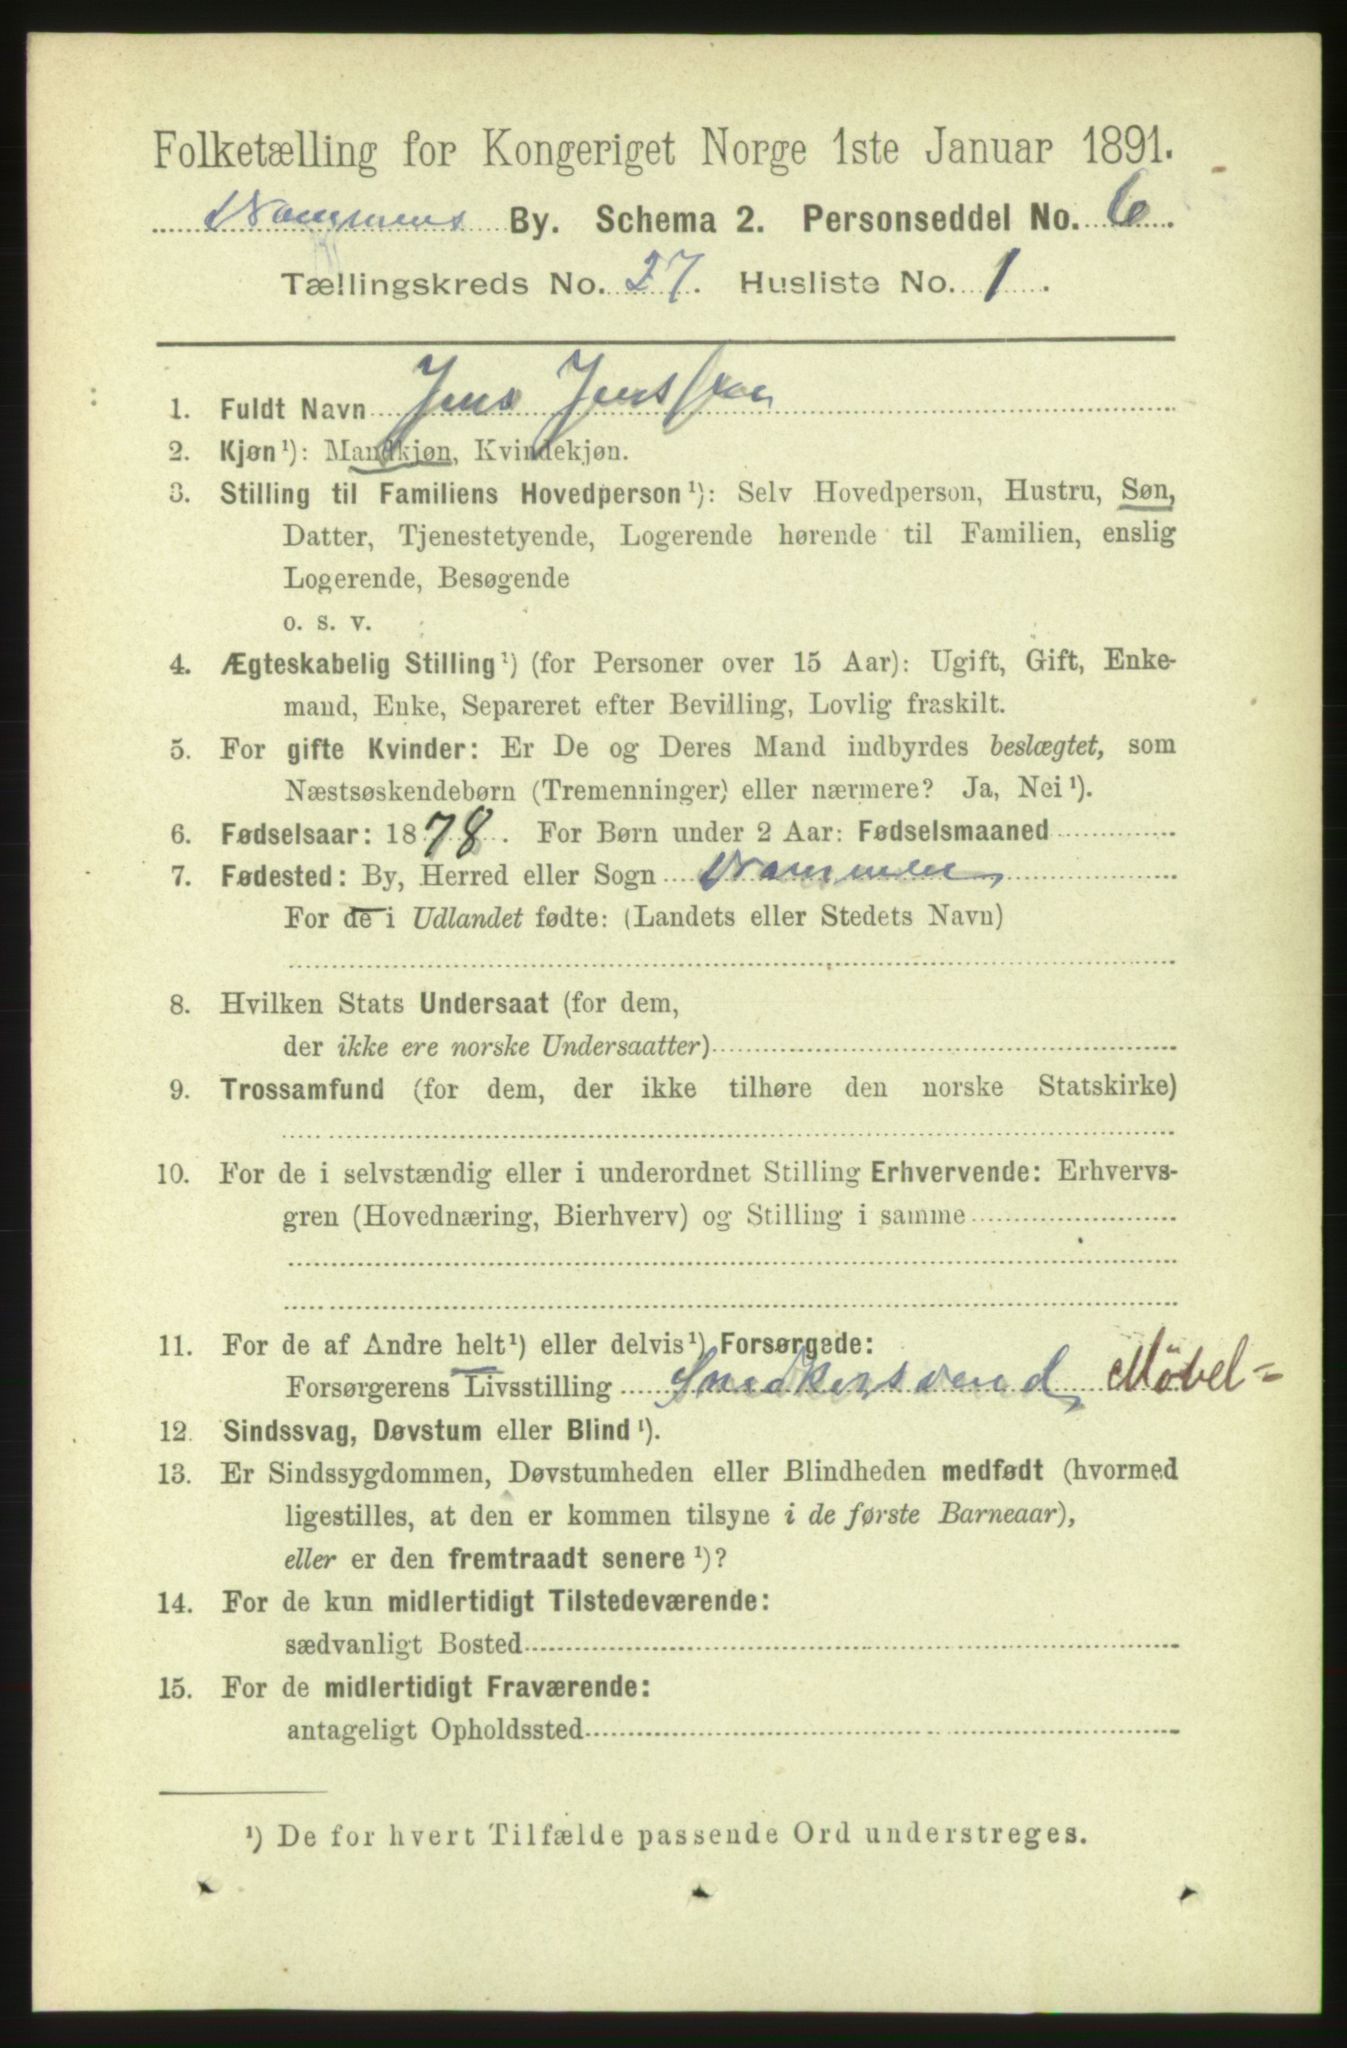 Folketælling for Kongeriget Norge 1ste Januar 1891.
Drammens By. Schema 2. Personseddel No. 6.
Tællingskreds No. 27. Husliste No. 1.
1. Fuldt Navn Jens Jenssen
2. Kjøn¹): Mandkjøn, Kvindekjøn.
3. Stilling til Familiens Hovedperson¹): Selv Hovedperson, Hustru, Søn,
Datter, Tjenestetyende, Logerende hørende til Familien, enslig
Logerende, Besøgende
o. s. v.
4. Ægteskabelig Stilling¹) (for Personer over 15 Aar): Ugift, Gift, Enke-
mand, Enke, Separeret efter Bevilling, Lovlig fraskilt.
5. For gifte Kvinder: Er De og Deres Mand indbyrdes beslægtet, som
Næstsøskendebørn (Tremenninger) eller nærmere? Ja, Nei¹).
6. Fødselsaar: 1878. For Børn under 2 Aar: Fødselsmaaned
7. Fødested: By, Herred eller Sogn Drammen
For de i Udlandet fødte: (Landets eller Stedets Navn)
8. Hvilken Stats Undersaat (for dem,
der ikke ere norske Undersaatter)
9. Trossamfund (for dem, der ikke tilhøre den norske Statskirke)
10. For de i selvstændig eller i underordnet Stilling Erhvervende: Erhvervs-
gren (Hovednæring, Bierhverv) og Stilling i samme
11. For de af Andre helt¹) eller delvis¹) Forsørgede:
Forsørgerens Livsstilling Snedkersvend, Möbel=
12. Sindssvag, Døvstum eller Blind¹).
13. Er Sindssygdommen, Døvstumheden eller Blindheden medfødt (hvormed
ligestilles, at den er kommen tilsyne i de første Barneaar),
eller er den fremtraadt senere¹)?
14. For de kun midlertidigt Tilstedeværende:
sædvanligt Bosted
15. For de midlertidigt Fraværende:
antageligt Opholdssted
¹) De for hvert Tilfælde passende Ord understreges.